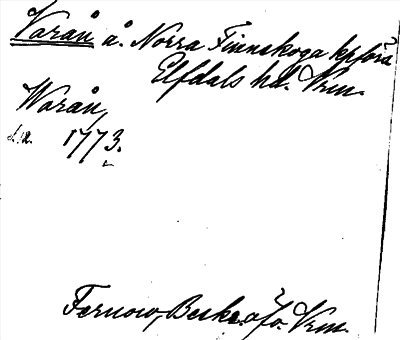 Varån å. Norra Finnskoga kpförs.
Elfdals hd. Vrm.
Warån,
1773.
Fernow, Beskr. öfv. Vrm.